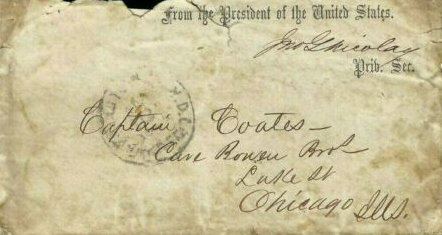 From the President of the United States.
Jno G Nicolay
Priv. Sec.
Captain Coates –
Care Bowen Bros
Lake St
Chicago Ills.